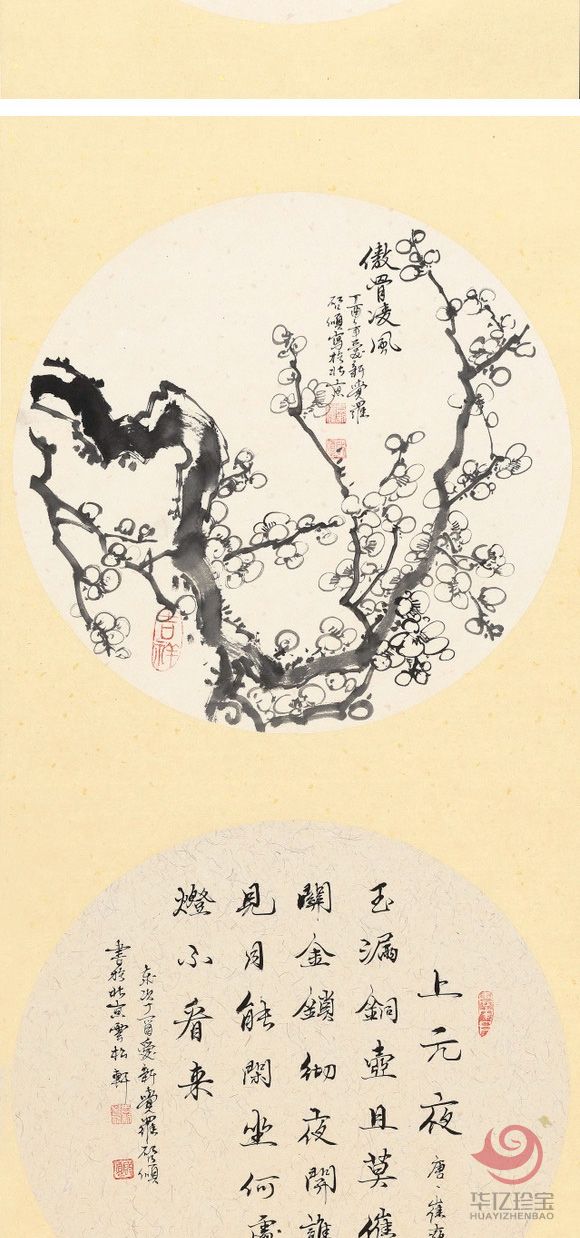 傲骨凌風
丁酉年愛新覺羅
啓頎寫於北京
吉祥
上元夜 唐·崔液
玉漏銅壺且莫催
關金鎖徹夜開誰
見月能閑坐何處
燈不看来
歲次丁酉愛新覺羅啓頎
書於北京雲松軒
华亿珍宝
HUAYIZHENBAO